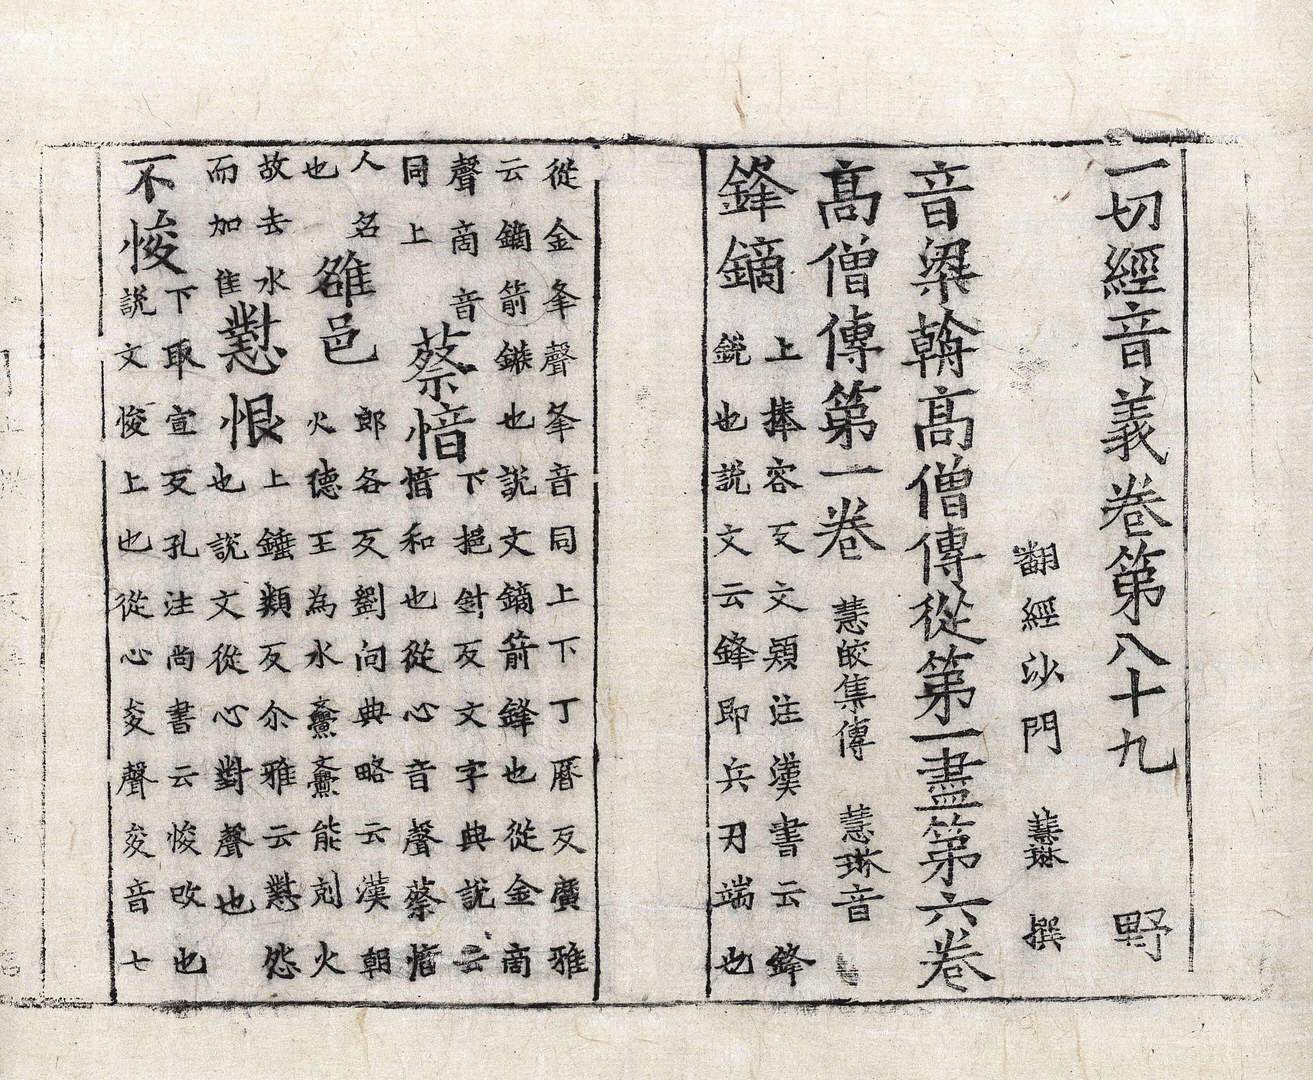 一切經音義卷第八十九 野
翻經沙門 慧琳 撰
音梁朝高僧傳從第一盡第六卷
高僧傳第一卷 慧皎集傳 慧琳音
鋒鏑 上捧容反文穎注漢書云鋒
銳也說文云鋒即兵刃端也
從金夆聲夆音同上下丁曆反廣雅
云鏑箭鏃也說文鏑箭鋒也從金啇
聲啇音
同上
蔡愔 下挹針反文字典說云
愔和也從心音聲蔡愔
人名
也
雒邑 郎各反劉向典略云漢朝
火德王為水能剋火
故去水
而加隹
懟恨 上錘類反尒雅云懟怨
也說文從心對聲也
不悛 下取宣反孔注尚書云悛改也
說文悛上也從心夋聲夋音七